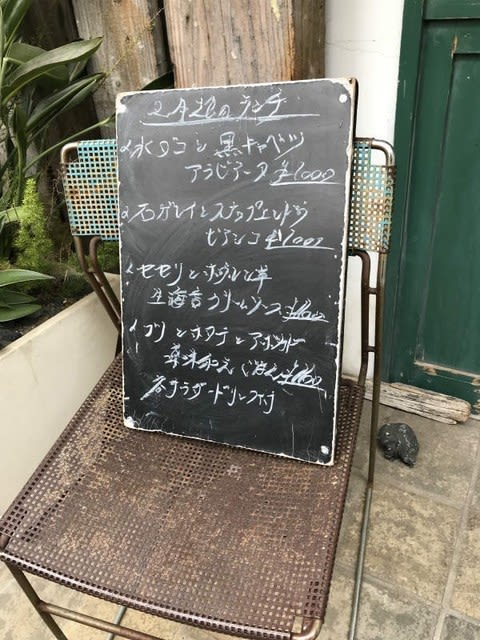 2月2日のランチ
水ダコと黒キャベツ
アラビアータ ¥1000
石ガレイとスナップエンドウ
ビアンコ ¥1000
セセリとホウレン草
生海苔クリームソース
ブリとホタテとアボカド
各サラダ・ドリンク付